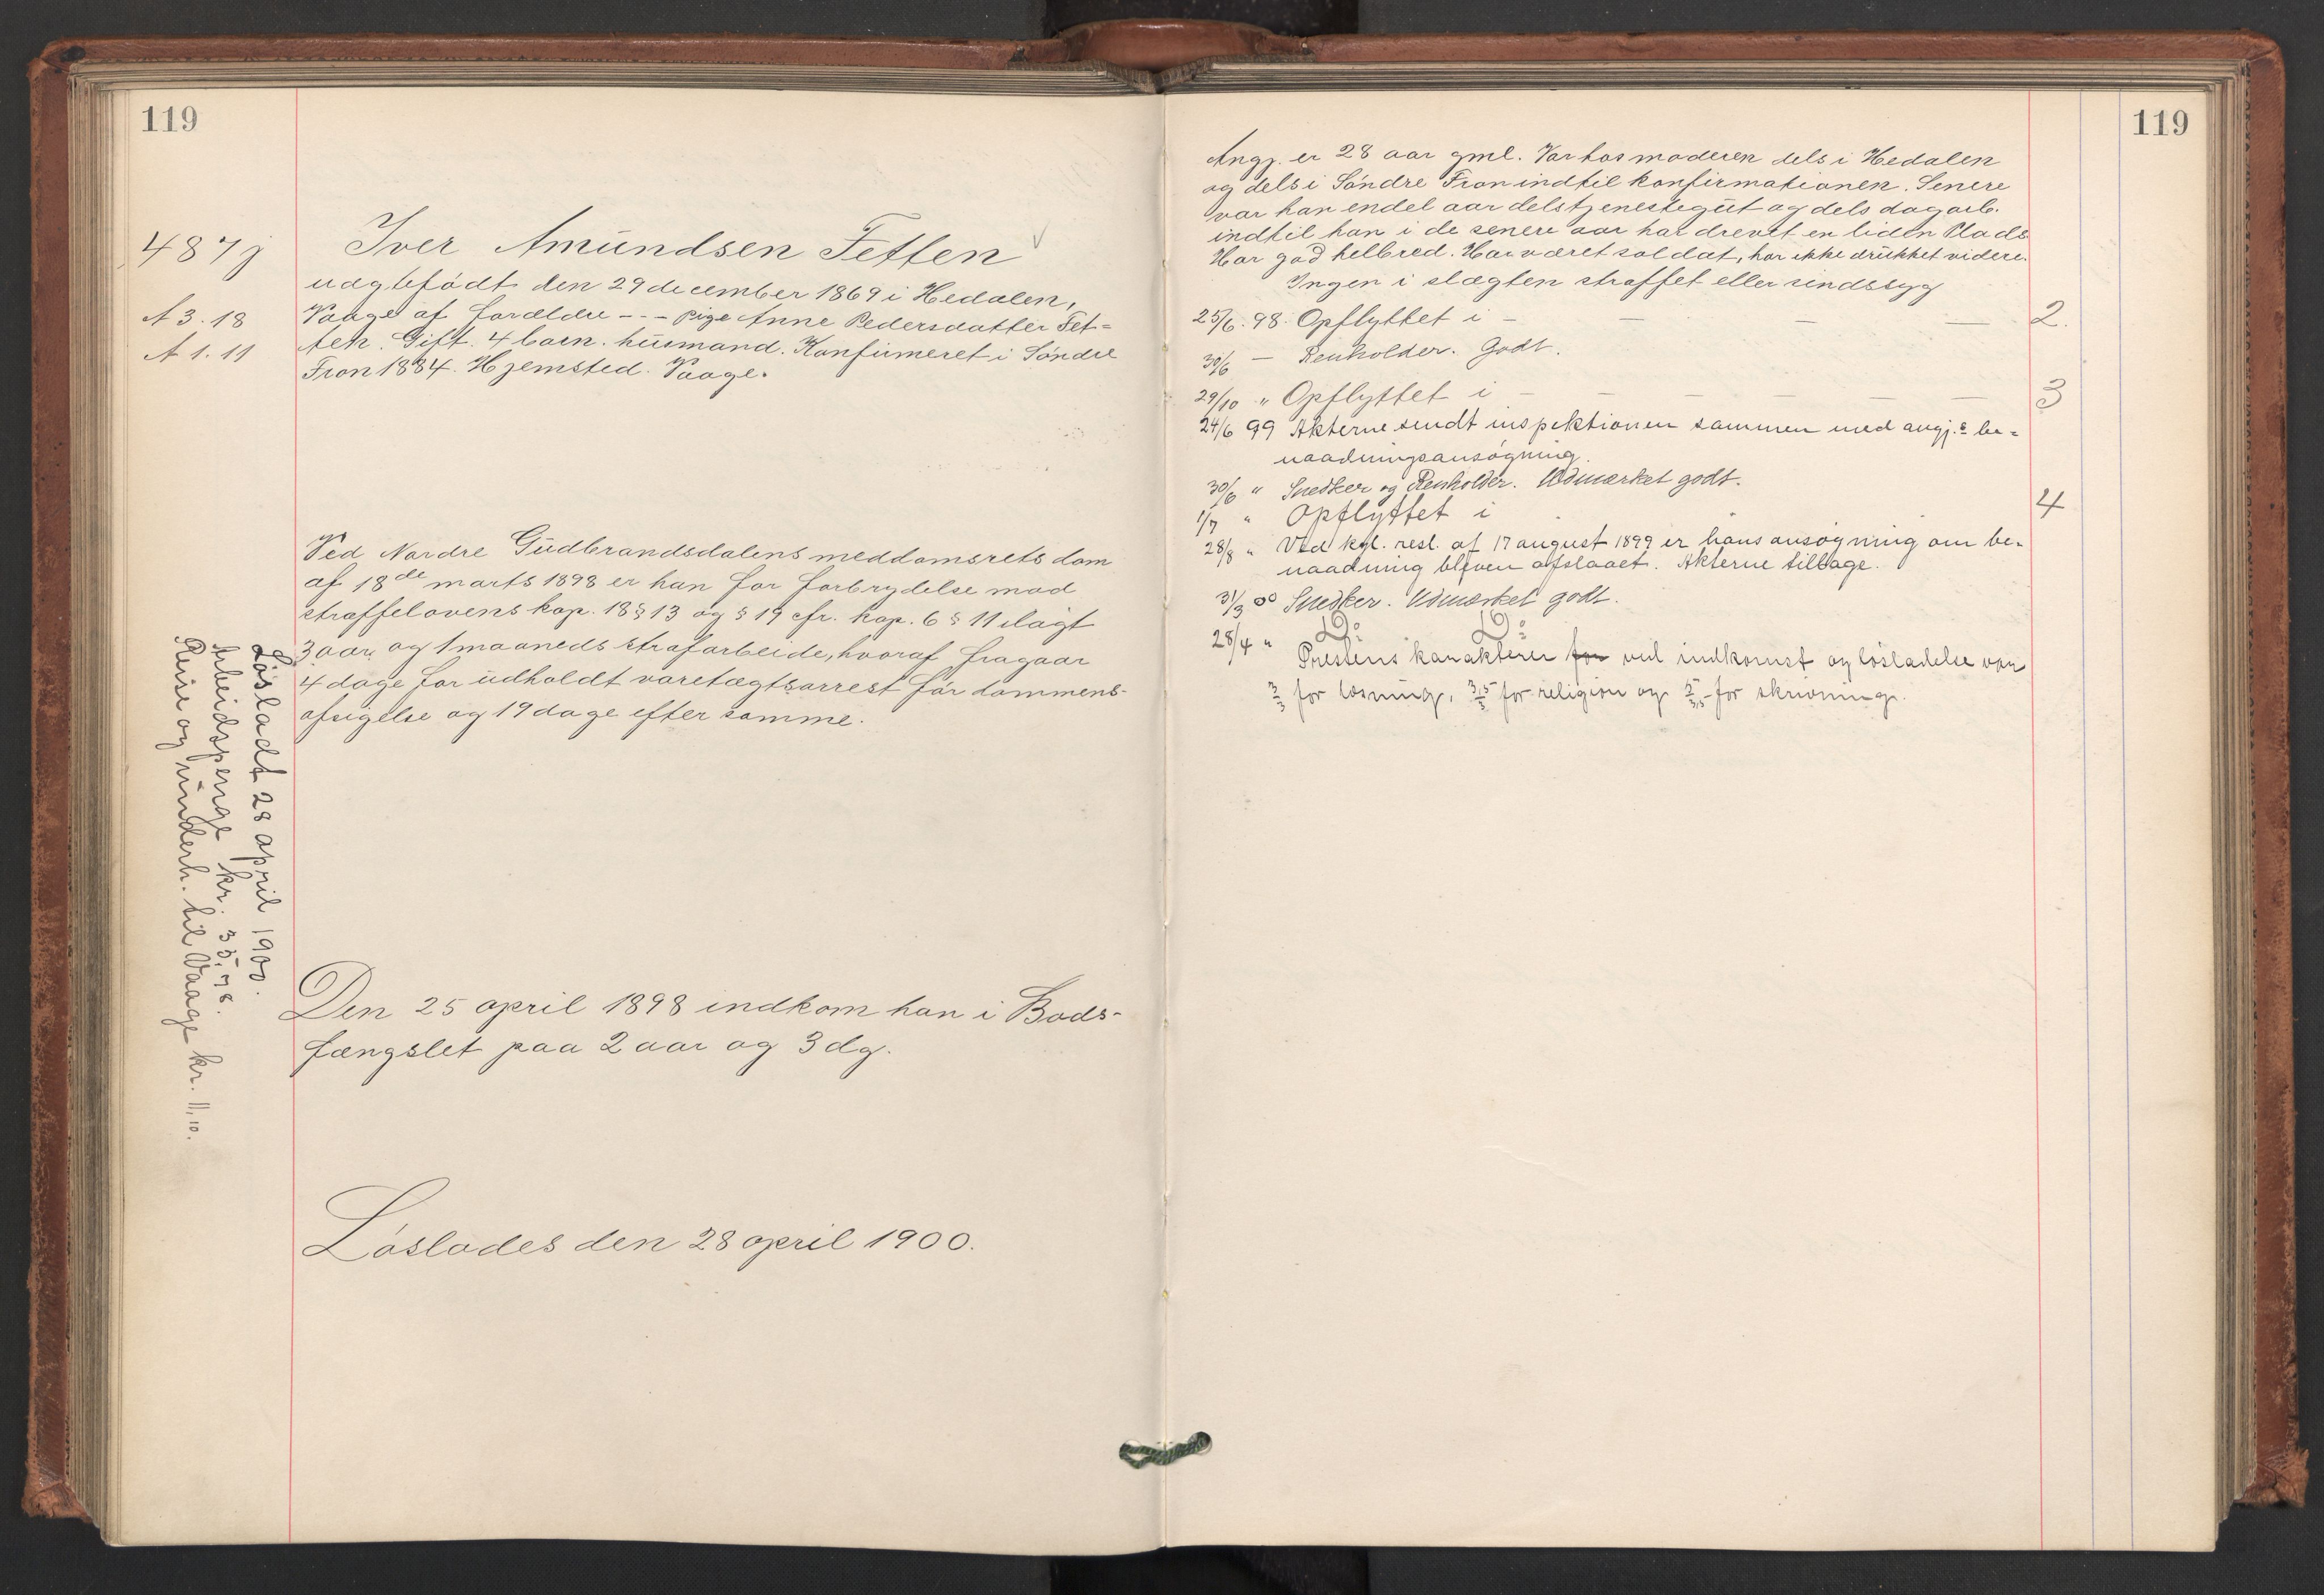 119
487j
A 3. 18
A 1. 11
Iver Amundsen Tetten
uægtefödt den 29 december 1869 i Hedalen,
Vaage af forældre - - - pige Anne Pedersdatter Tet=
ten. Gift. 4 barn. husmand. Konfirmeret i Söndre
Fron 1884. Hjemsted. Vaage.
Ved Nordre Gudbrandsdalens meddomsrets dom
af 18de marts 1898 er han for forbrydelse mod
straffelovens kap. 18 § 13 og § 19 cfr. kap. 6 § 11 ilagt
3 aar og 1 maaneds strafarbeide, hvoraf fragaar
4 dage for udholdt varetægtsarrest för dommens-
afsigelse og 19 dage efter samme.
Lösladt 28 april 1900.
Arbeidspenge kr. 35,78.
Reise og underh. til Vaage kr. 11,10.
Den 25 april 1898 indkom han i Bods-
fængslet paa 2 aar og 3 dg.
Löslades den 28 april 1900.
119
Angj. er 28 aar gml. Var hos moderen dels i Hedalen
og dels i Söndre Fron indtil konfirmationen. Senere
var han endel aar dels tjenestegut og dels dagarb.
indtil han i de senere aar har drevet en liden Plads
Har god helbred. Har været soldat, har ikke drukket videre.
Ingen i slægten straffet eller sindssyg
25/6. 98. Opflyttet i - — — — — 2.
30/6 — Renholder. Godt.
29/10 " Opflyttet i - - - - — — 3
24/6 99 Akterne sendt inspektionen sammen med angj.s be=
naadningsansögning.
30/6 " Snedker og Renholder. Udmærket godt.
1/7 " Opflyttet i 4
28/8 " Ved kgl. resl. af 17 august 1899 er hans ansögning om be-
naadning bleven afslaaet. Akterne tilbage.
31/3 00 Snedker. Udmærket godt.
28/4 " Do Do
Prestens karakterer for ved indkomst og lösladelse var
3/3 for læsning, 3,5/3 for religion og 5/3,5 for skrivning.